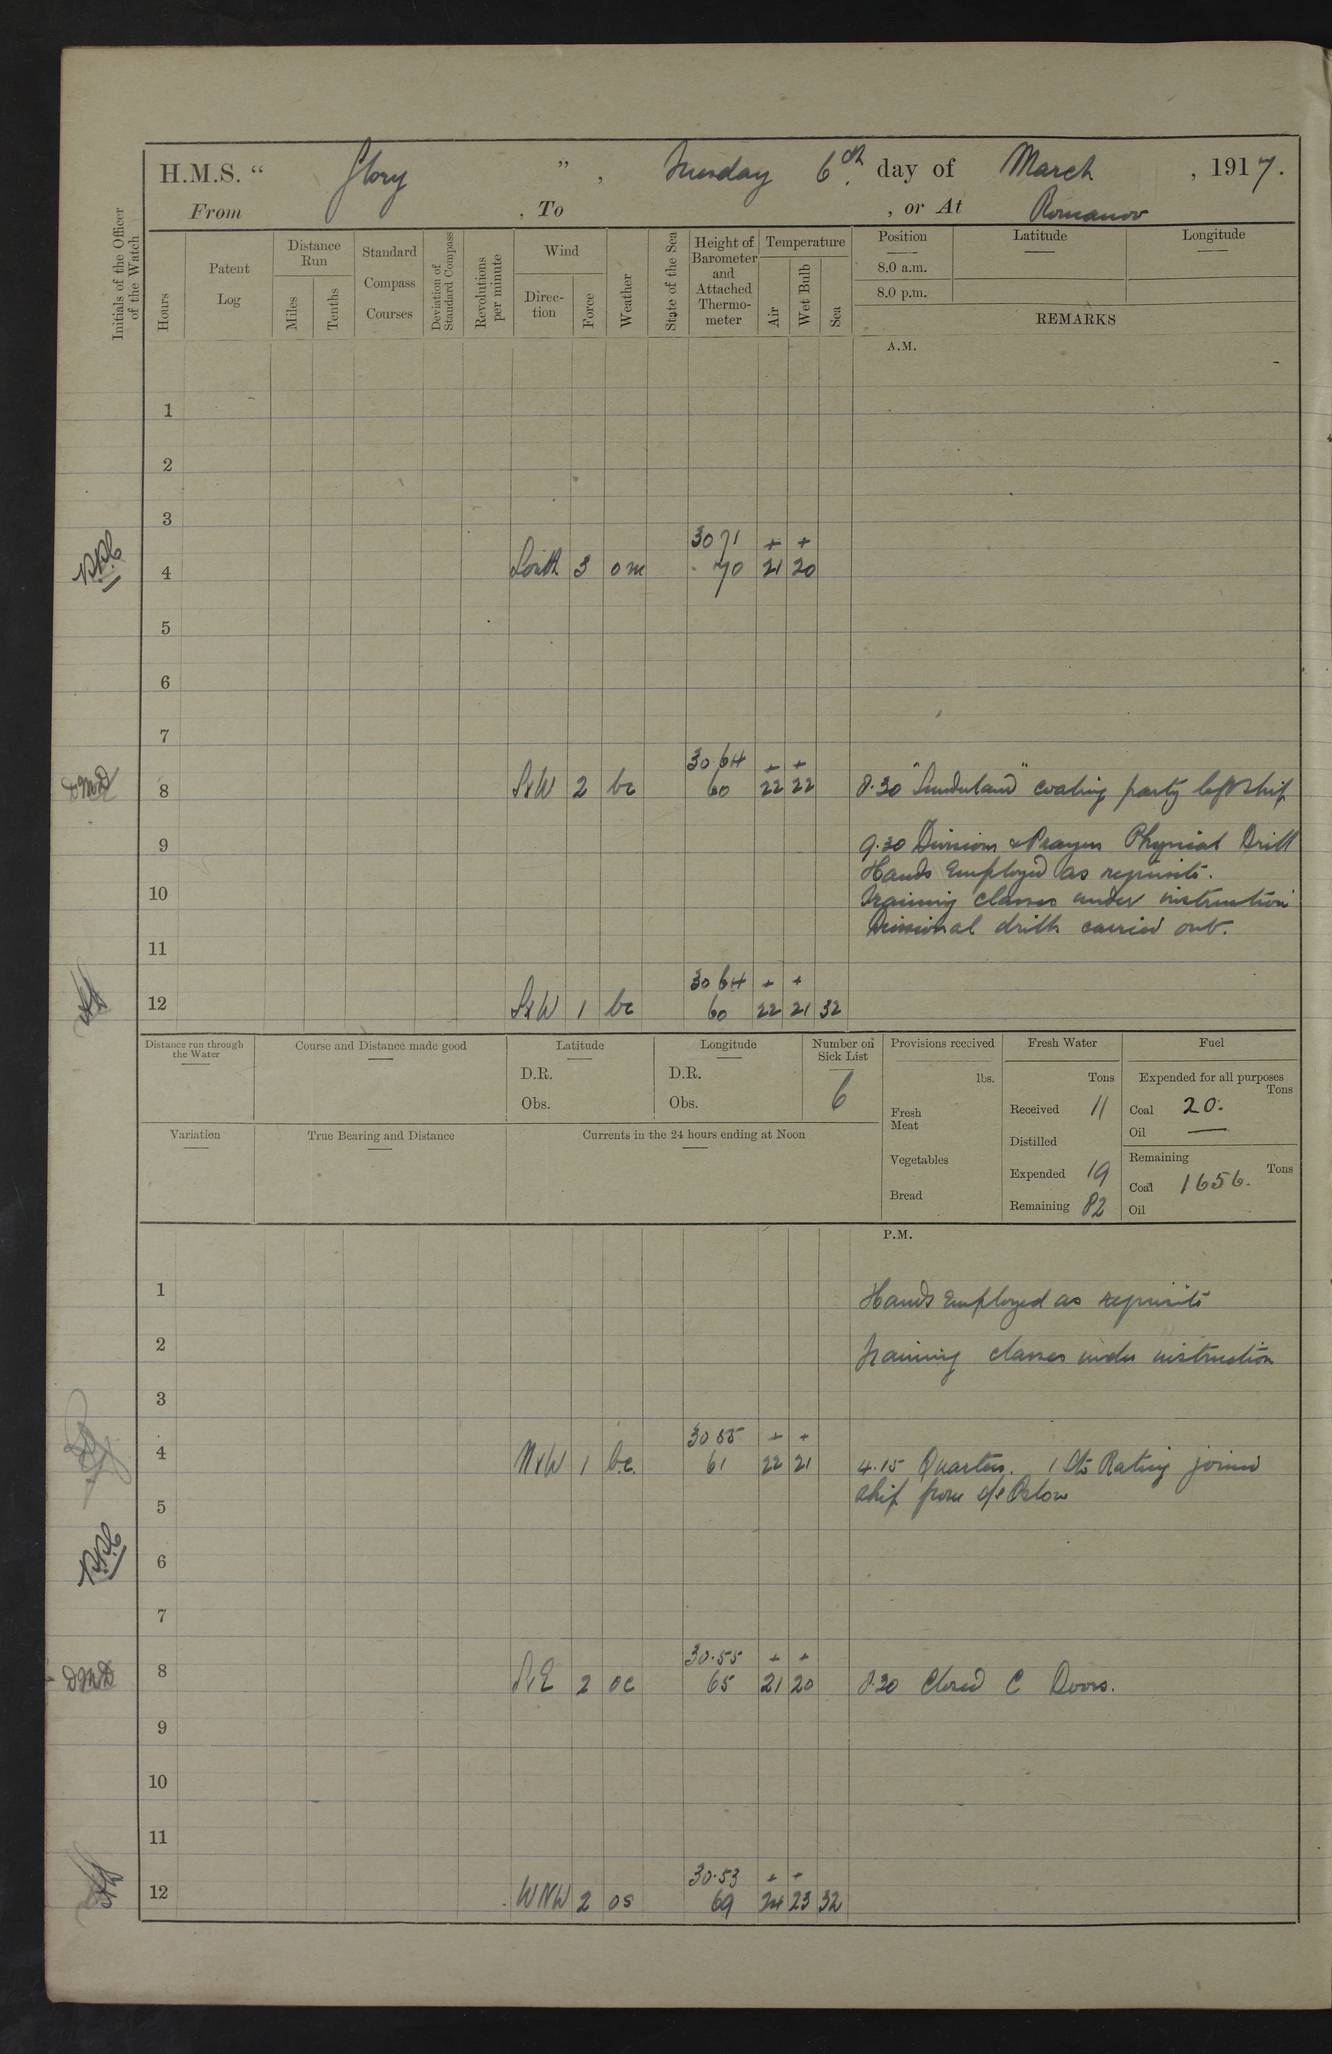 H.M.S. “ Glory ”, Tuesday 6th day of March, 1917.
From , To , or At Romanov
Initials of the Officer of the Watch
Hours
Patent Log
Distance Run
Miles
Tenths
Standard Compass Courses
Deviation of Standard Compass
Revolutions per minute
Wind
Direc-tion
Force
Weather
State of the Sea
Height of Barometer and Attached Thermo-meter
Temperature
Air
Wet Bulb
Sea
Position
8.0 a.m.
8.0 p.m.
Latitude
Longitude
REMARKS
A.M.
1
2
3
30 71 + +
4 South 3 om 70 21 20
5
6
7
30.64 + +
8 SxW 2 bc 60 22 22 8.30 "Sunderland" coaling party left ship
9 9.30 Divisions & Prayers Physical Drill
Hands Employed as requisite.
10 Training classes under instruction
Divisional drills carried out.
11
30 64 + +
12 SxW 1 bc 60 22 21 32
Distance run through the Water
Course and Distance made good
Latitude
D.R.
Obs.
Longitude
D.R.
Obs.
Number on Sick List
6
Variation
True Bearing and Distance
Currents in the 24 hours ending at Noon
Provisions received
lbs.
Fresh Meat
Vegetables
Bread
Fresh Water
Tons
Received 11
Distilled
Expended 19
Remaining 82
Fuel
Expended for all purposes
Tons
Coal 20.
Oil —
Remaining
Tons
Coal 1656.
Oil
P.M.
1 Hands Employed as requisite
2 Training classes under instruction
3
30 55 + +
4 NxW 1 b.c. 61 22 21 4.15 Quarters. 1 Rating joined
ship from
5
6
7
30.55 + +
8 SxE 2 oc 65 21 20 8.30 Closed C Doors.
9
10
11
30.53 + +
12 WNW 2 os 69 24 23 32